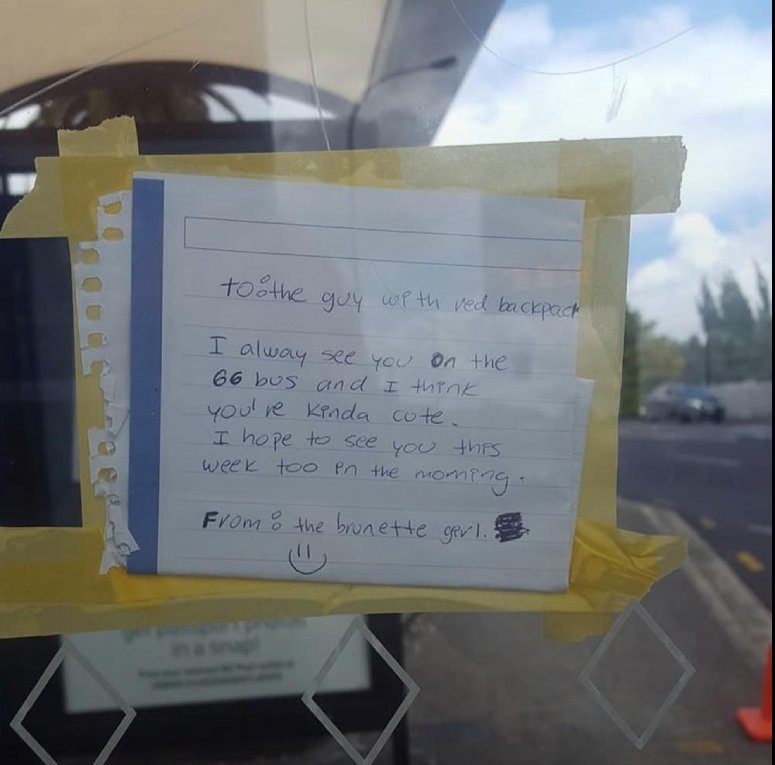 to: the guy with red backpack
I alway see you on the
66 bus and I think
you're kinda cute.
I hope to see you this
week too in the morning.
From: the brunette girl.
in a snap!